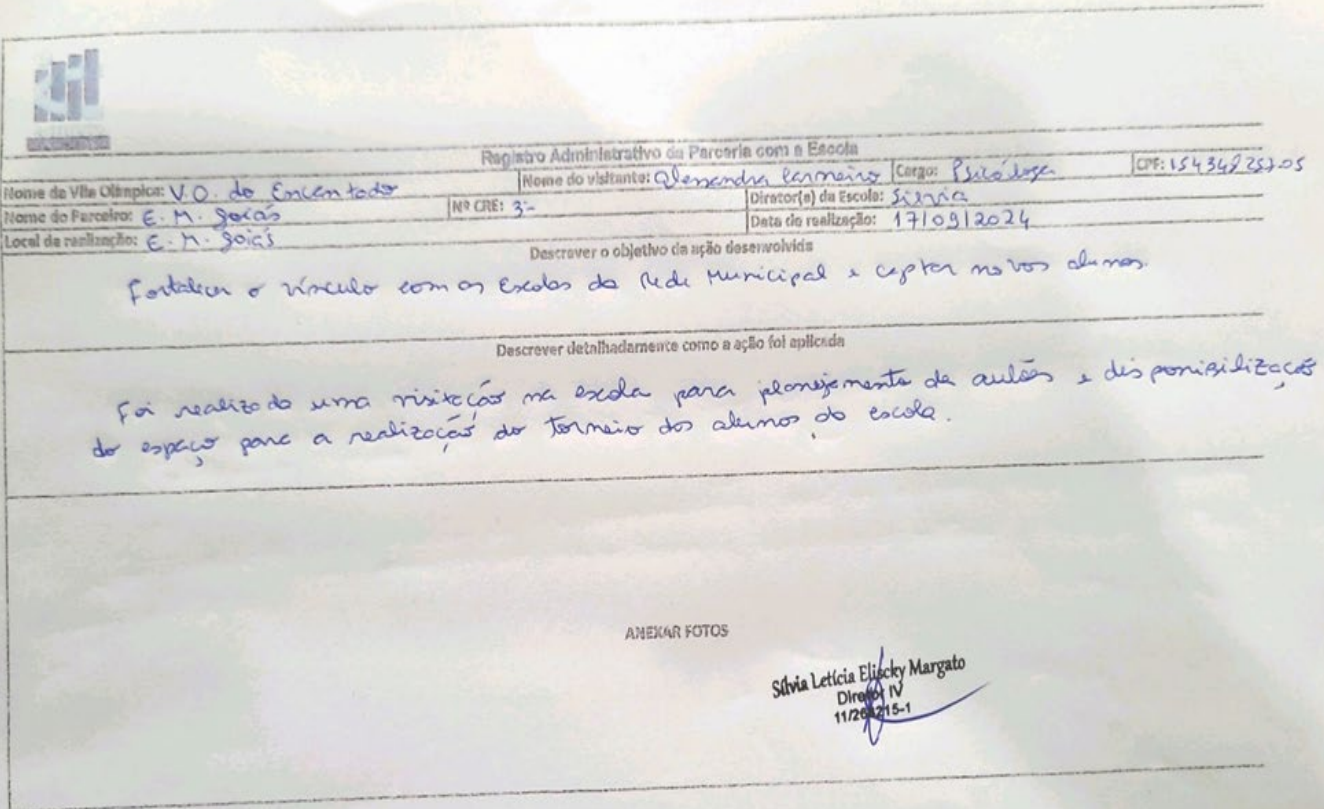 Registro Administrativo da Parceria com a Escola
Nome da Vila Olímpica: V.O. do Encantado Nome do visitante: Alessandra Carneiro Cargo: Psicóloga CPF:
Nome do Parceiro: E. M. Goiás Nº CRE: 3ª Diretor(a) da Escola: Silvia
Local da realização: E. M. Goiás Data da realização: 17/09/2024
Descrever o objetivo da ação desenvolvida
Fortalecer o vínculo com as Escolas da Rede Municipal e captar novos alunos.
Descrever detalhadamente como a ação foi aplicada
Foi realizado uma visitação na escola para planejamento de aulões e disponibilização
do espaço para a realização do Torneio dos alunos da escola.
ANEXAR FOTOS
Silvia Letícia Eliscky Margato
Diretor IV